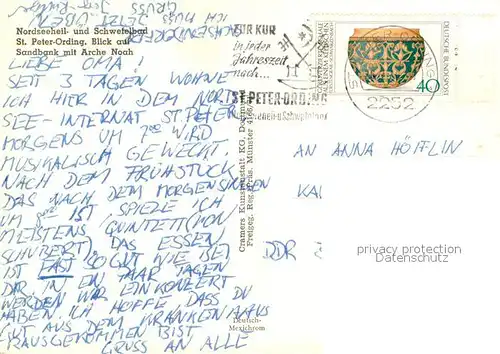 Nordseeheil- und Schwefelbad
St. Peter-Ording. Blick auf
Sandbank mit Arche Noah
LIEBE OMA!
SEIT 3 TAGEN WOHNE
ICH HIER IN DEM NORD
SEE-INTERNAT ST. PETER
MORGENS UM 7°° WIRD
MUSIKALISCH GEWECKT.
NACH DEM FRÜHSTÜCK
DAS NACH DEM MORGENSINGEN
UM 8°° IST SPIELE ICH
MEISTENS QUINTETT (VON
SCHUBERT). DAS ESSEN
IST FAST SO GUT WIE BEI
DIR. IN EIN PAAR TAGEN
WERDEN WIR EIN KONZERT
HABEN. ICH HOFFE DASS DU
GUT AUS DEM KRANKENHAUS
RAUSGEKOMMEN BIST
GRUSS AN ALLE
ICH MUSS JETZT ÜBEN
GRUSS
ZUR KUR
in jeder
Jahreszeit
nach...
ST. PETER-ORDING
2252
DEUTSCHE BUNDESPOST
40
Cramers Kunstanstalt KG, Dortmund
Freigeg. Reg. Präs. Münster
Deutsch-
Mexichrom
AN ANNA HÖFFLIN
KAI
DDR
privacy protection
AnsichtskartenVersand.com